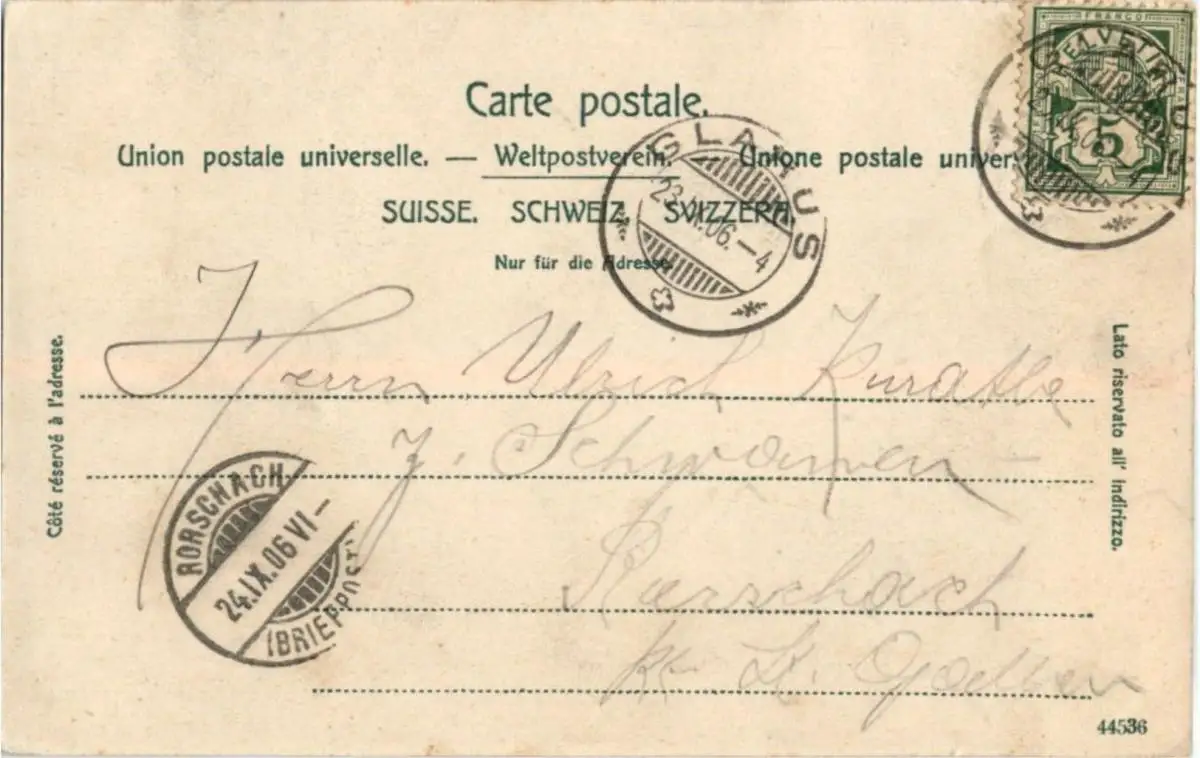 Carte postale.
Union postale universelle. — Weltpostverein. — Unione postale univers
SUISSE. SCHWEIZ. SVIZZERA.
Nur für die Adresse.
FRANCO
HELVETIA
5
GLARUS
23.IX.06.-4
Côté réservé à l'adresse.
Lato riservato all' indirizzo.
Herrn Ulrich Kurath
z. Schwanen
Rorschach
Kt. St. Gallen
RORSCHACH
24.IX.06 VI-
(BRIEFPOST)
44536